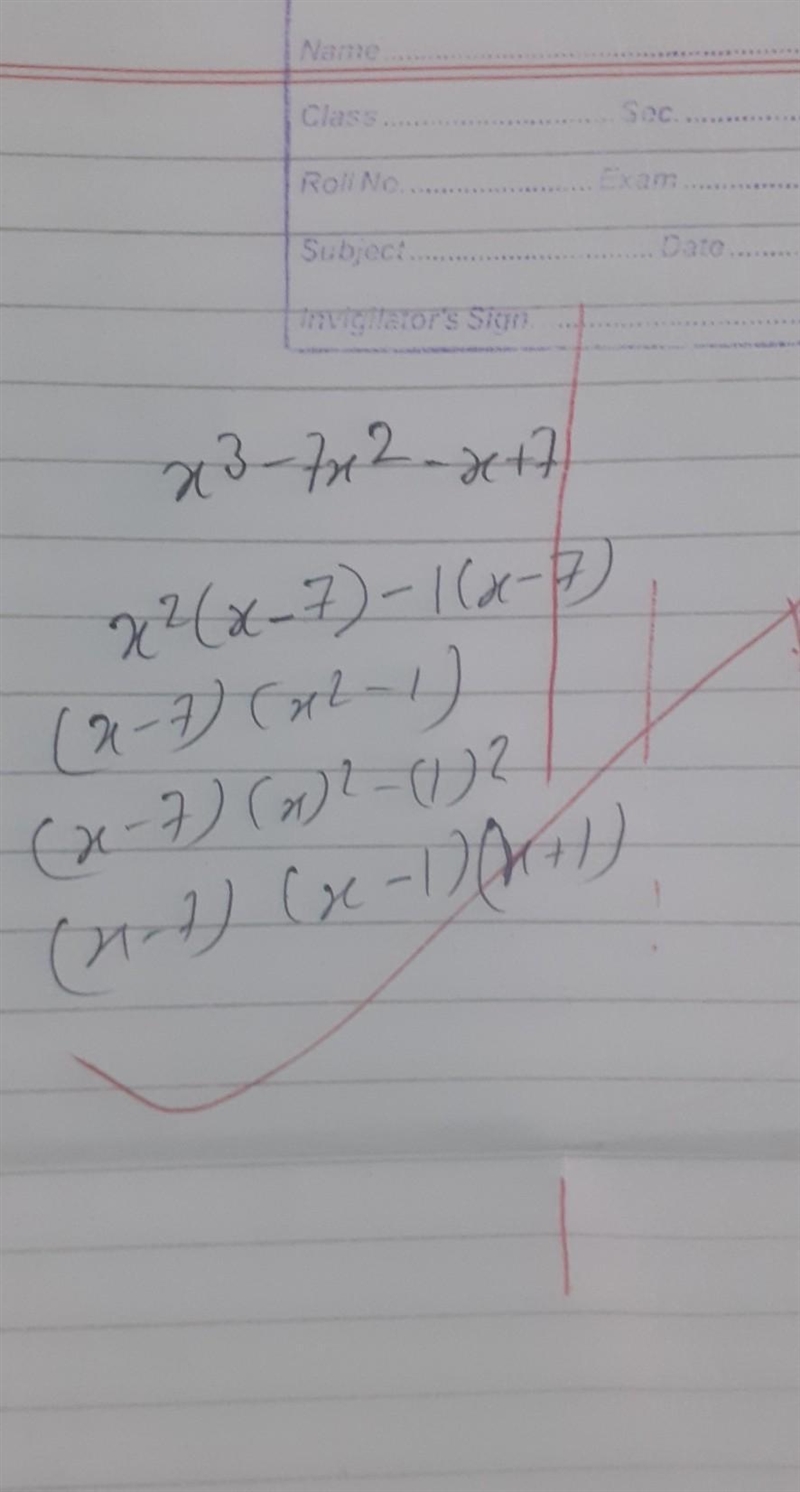 Name
Class Sec.
Roll No. Exam
Subject Date
Invigilator's Sign
x³ - 7x² - x + 7
x²(x - 7) - 1(x - 7)
(x - 7) (x² - 1)
(x - 7) (x)² - (1)²
(x - 7) (x - 1)(x + 1)